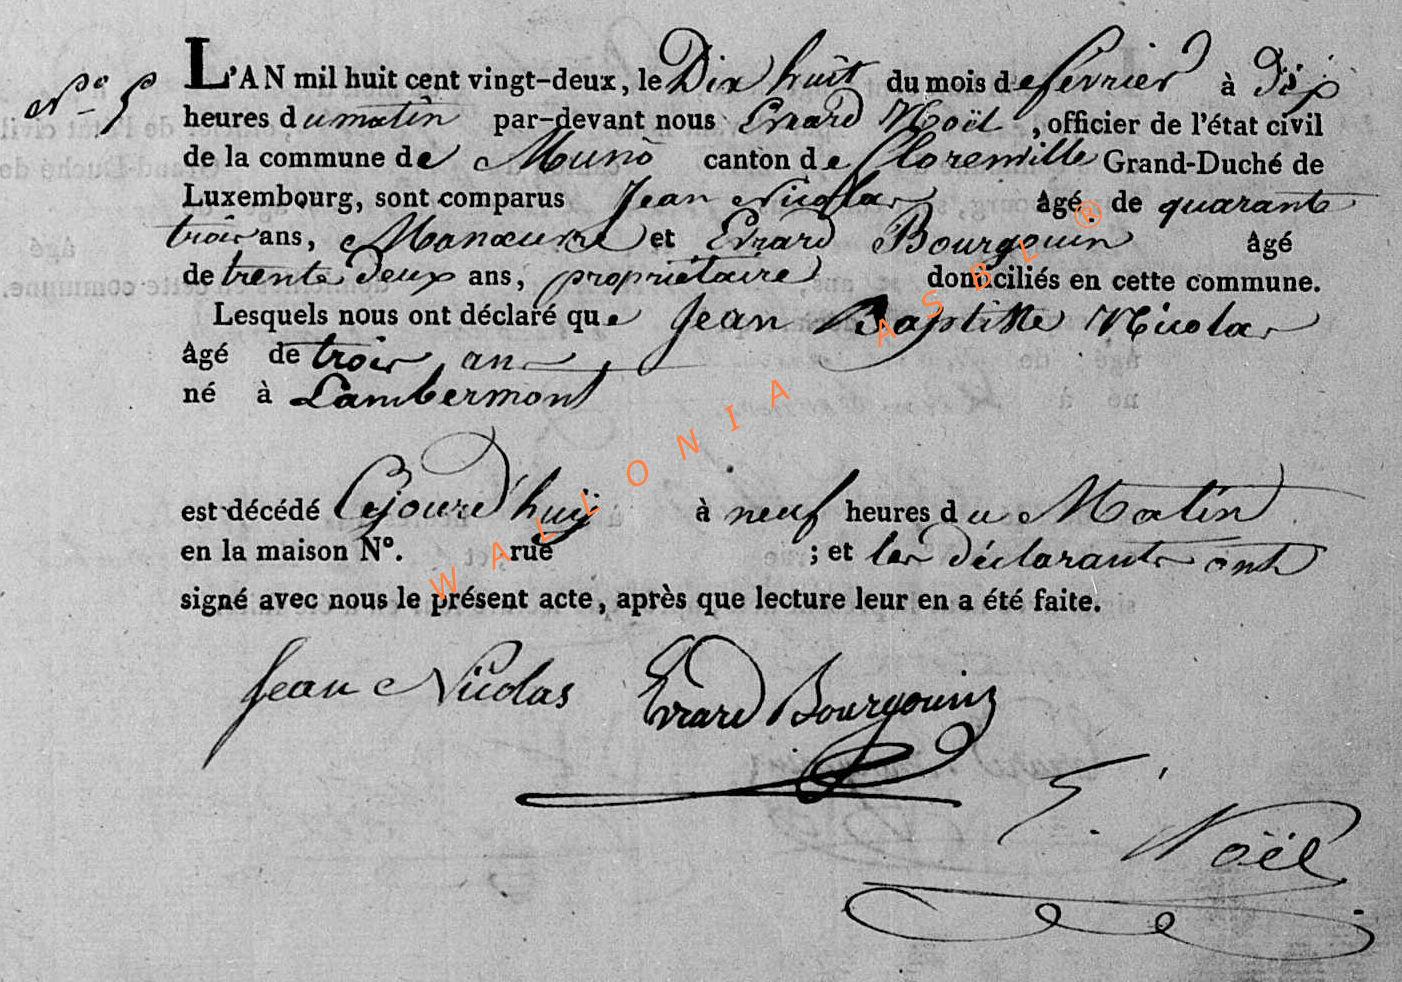 N.° 5
L'AN mil huit cent vingt-deux, le Dix huit du mois de fevrier à Dix
heures du matin par-devant nous Evrard Noël, officier de l'état civil
de la commune de Muno canton de Florenville Grand-Duché de
Luxembourg, sont comparus Jean Nicolas âgé de quarante
trois ans, Manœuvre et Evrard Bourgouin âgé
de trente deux ans, propriétaire domiciliés en cette commune.
Lesquels nous ont déclaré que Jean Baptiste Nicolas
âgé de trois ans
né à Lambermont
est décédé Cejourd'huy à neuf heures du Matin
en la maison N°. rue ; et les déclarants ont
signé avec nous le présent acte, après que lecture leur en a été faite.
Jean Nicolas Evrard Bourgouin
E. Noël
WALLONIA ASBL ®